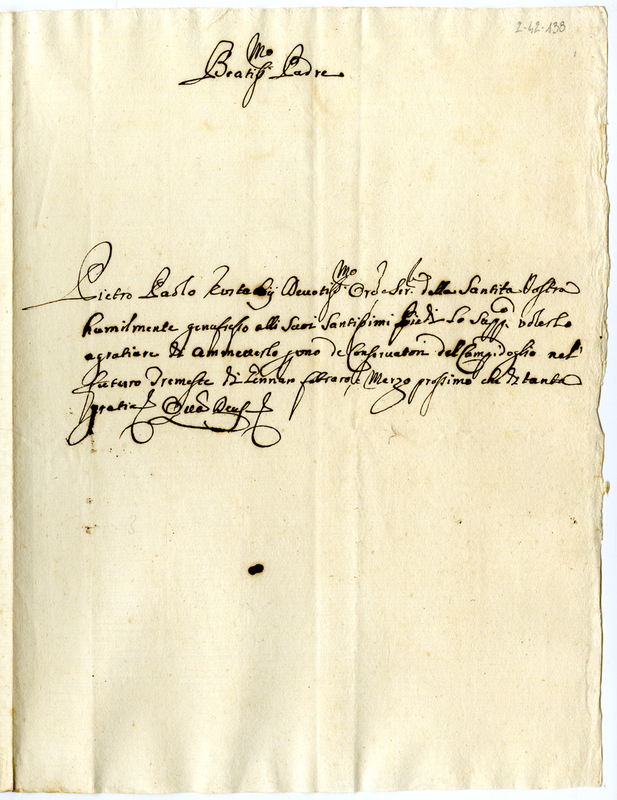 2-42-138
Beatiss.mo Padre
Pietro Paolo Devotiss.mo Or.e e Ser.re della Santita Vostra
humilmente genuflesso alli Suoi Santissimi piedi Lo Supp.ca volerlo
agratiare di ammetterlo p uno de Conservatori del Campidoglio nel
futuro Tremestre di Gennaro febraro e Marzo prossimo che di tanta
gratia Deus